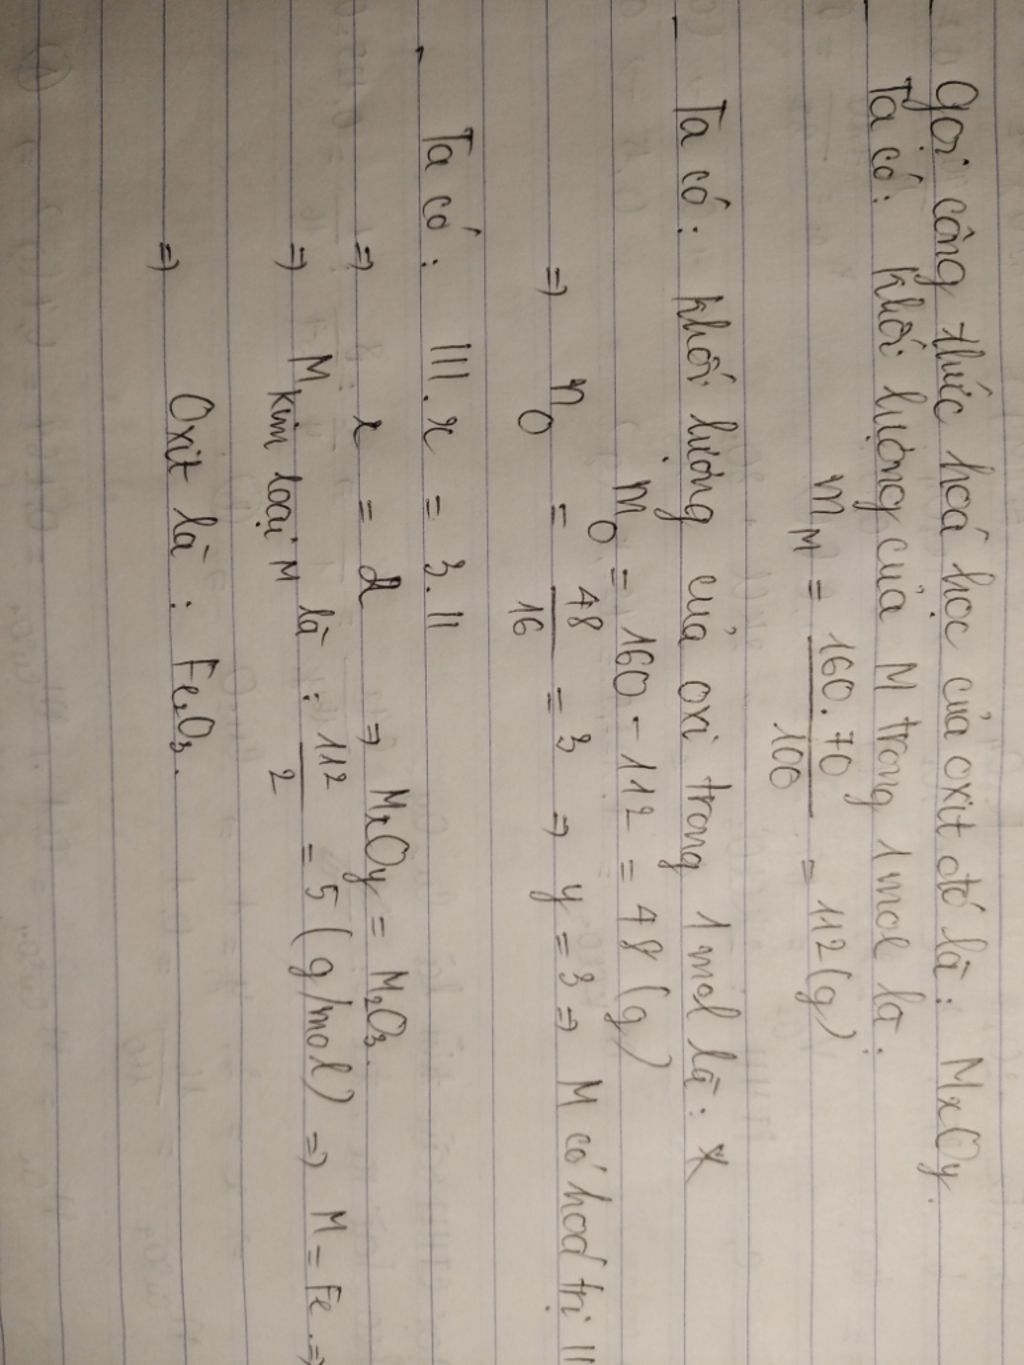 Gọi công thức hoá học của oxit đó là: MxOy.
Ta có: Khối lượng của M trong 1 mol là:
mM = 160.70/100 = 112 (g)
Ta có: Khối lượng của oxi trong 1 mol là: x
mO = 160 - 112 = 48 (g)
=> nO = 48/16 = 3 => y = 3 => M có hoá trị II
Ta có: III.x = 3.II
=> x = 2 => MxOy = M2O3.
=> M kim loại M là: 112/2 = 5 (g/mol) => M = Fe. =>
=> Oxit là: Fe2O3.